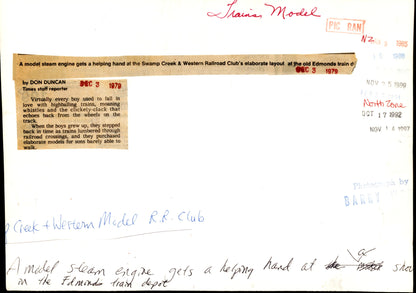 Trains Model
PIC DAN
NZ
A model steam engine gets a helping hand at the Swamp Creek & Western Railroad Club's elaborate layout at the old Edmonds train d
DEC 3 1979
by DON DUNCAN
Times staff reporter
DEC 3 1979
Virtually every boy used to fall in
love with highballing trains, moaning
whistles and the clickety-clack that
echoes back from the wheels on the
track.
When the boys grew up, they stepped
back in time as trains lumbered through
railroad crossings, and they purchased
elaborate models for sons barely able to
walk.
North Zone
OCT 17 1992
Photograph by
Creek + Western Model R.R. Club
A model steam engine gets a helping hand at show
in the Edmonds train depot